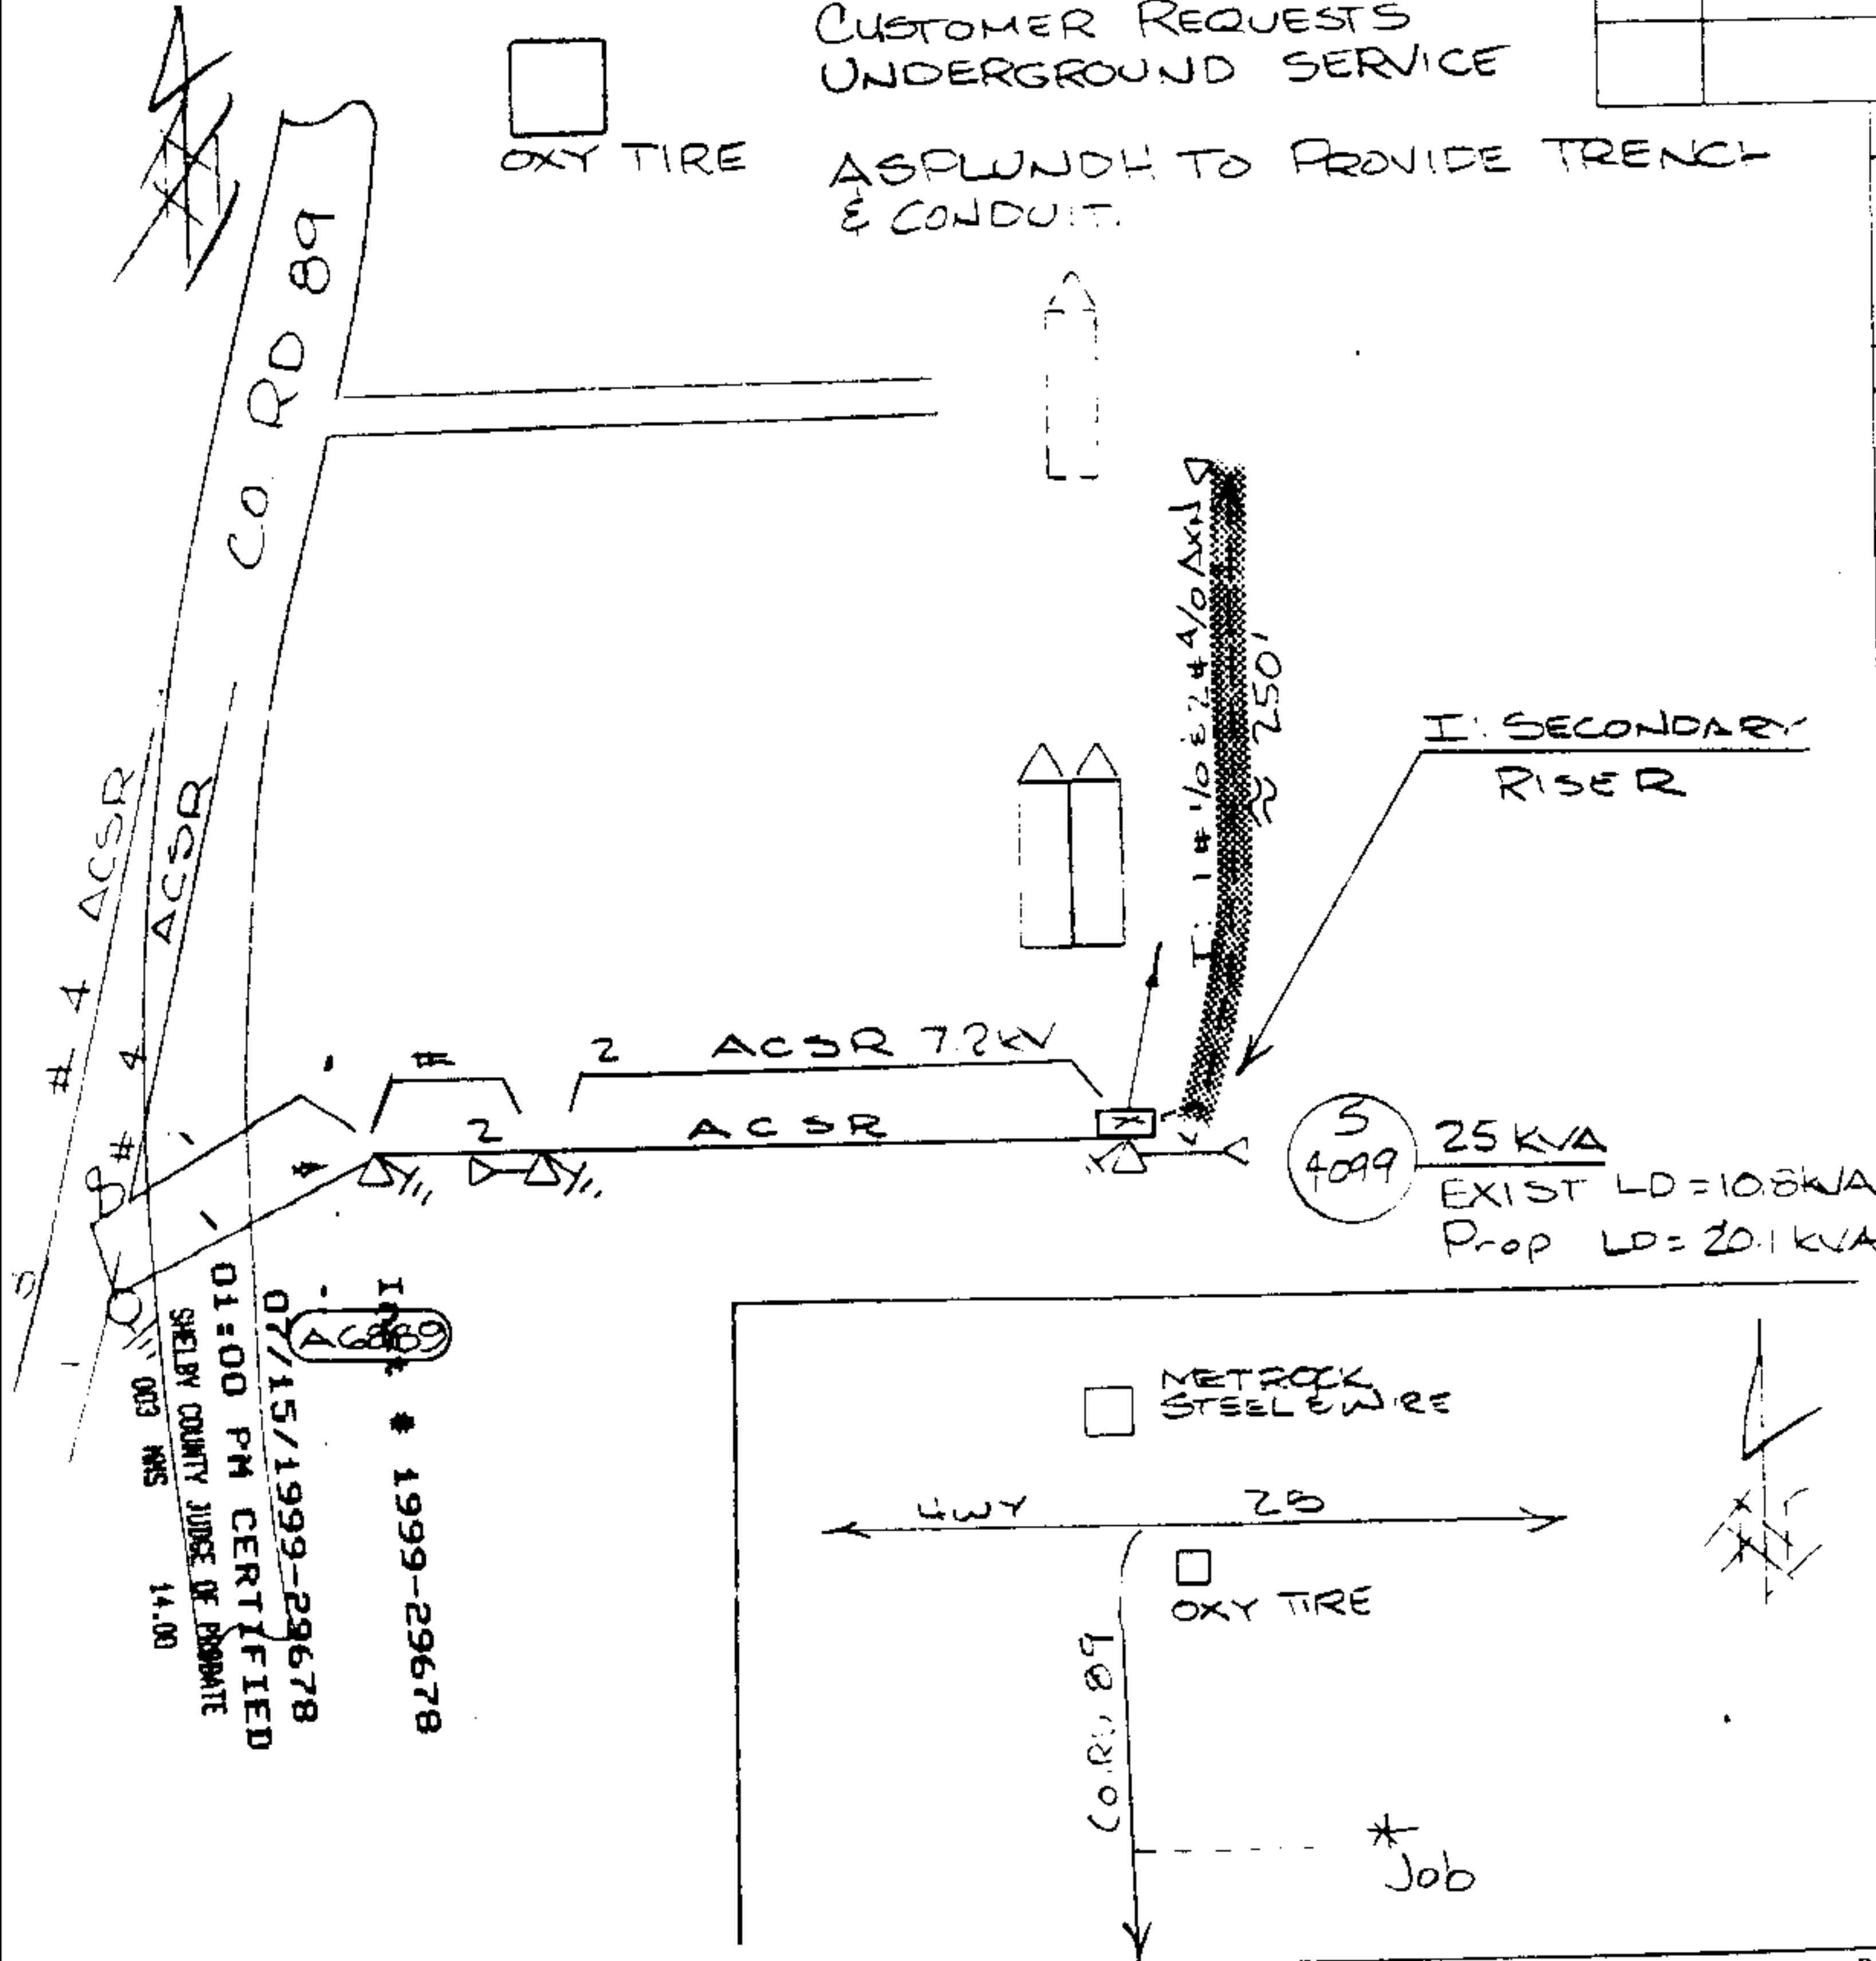 CUSTOMER REQUESTS
UNDERGROUND SERVICE
OXY TIRE
ASPLUNDH TO PROVIDE TRENCH
& CONDUIT.
CO. RD 89
# 4 ACSR
# 4 ACSR
I: 1#1/0 & 2#4/0 AXNJ
≈ 250'
I: SECONDARY
RISER
# 2 ACSR 7.2kV
# 2 ACSR
X
S
4099
25 KVA
EXIST LD = 10.8kVA
Prop LD = 20.1kVA
A6889
Inst # 1999-29678
07/15/1999-29678
01:00 PM CERTIFIED
SHELBY COUNTY JUDGE OF PROBATE
003 MMS 14.00
METROCK
STEEL & WIRE
HWY 25
OXY TIRE
CO. RD 89
* Job